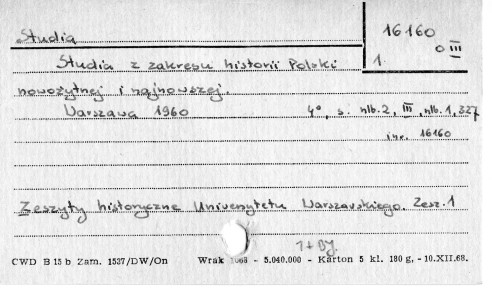 Studia
16160
O III
1.
Studia z zakresu historii Polski
nowożytnej i najnowszej.
Warszawa 1960 4°, s. nlb.2, III, nlb.1, 327
inw. 16160
Zeszyty historyczne Uniwersytetu Warszawskiego. Zesz.1
1+BJ.
CWD B 15 b Zam. 1537/DW/On Wrak - 5.040.000 - Karton 5 kl. 180 g, -10.XII.68.